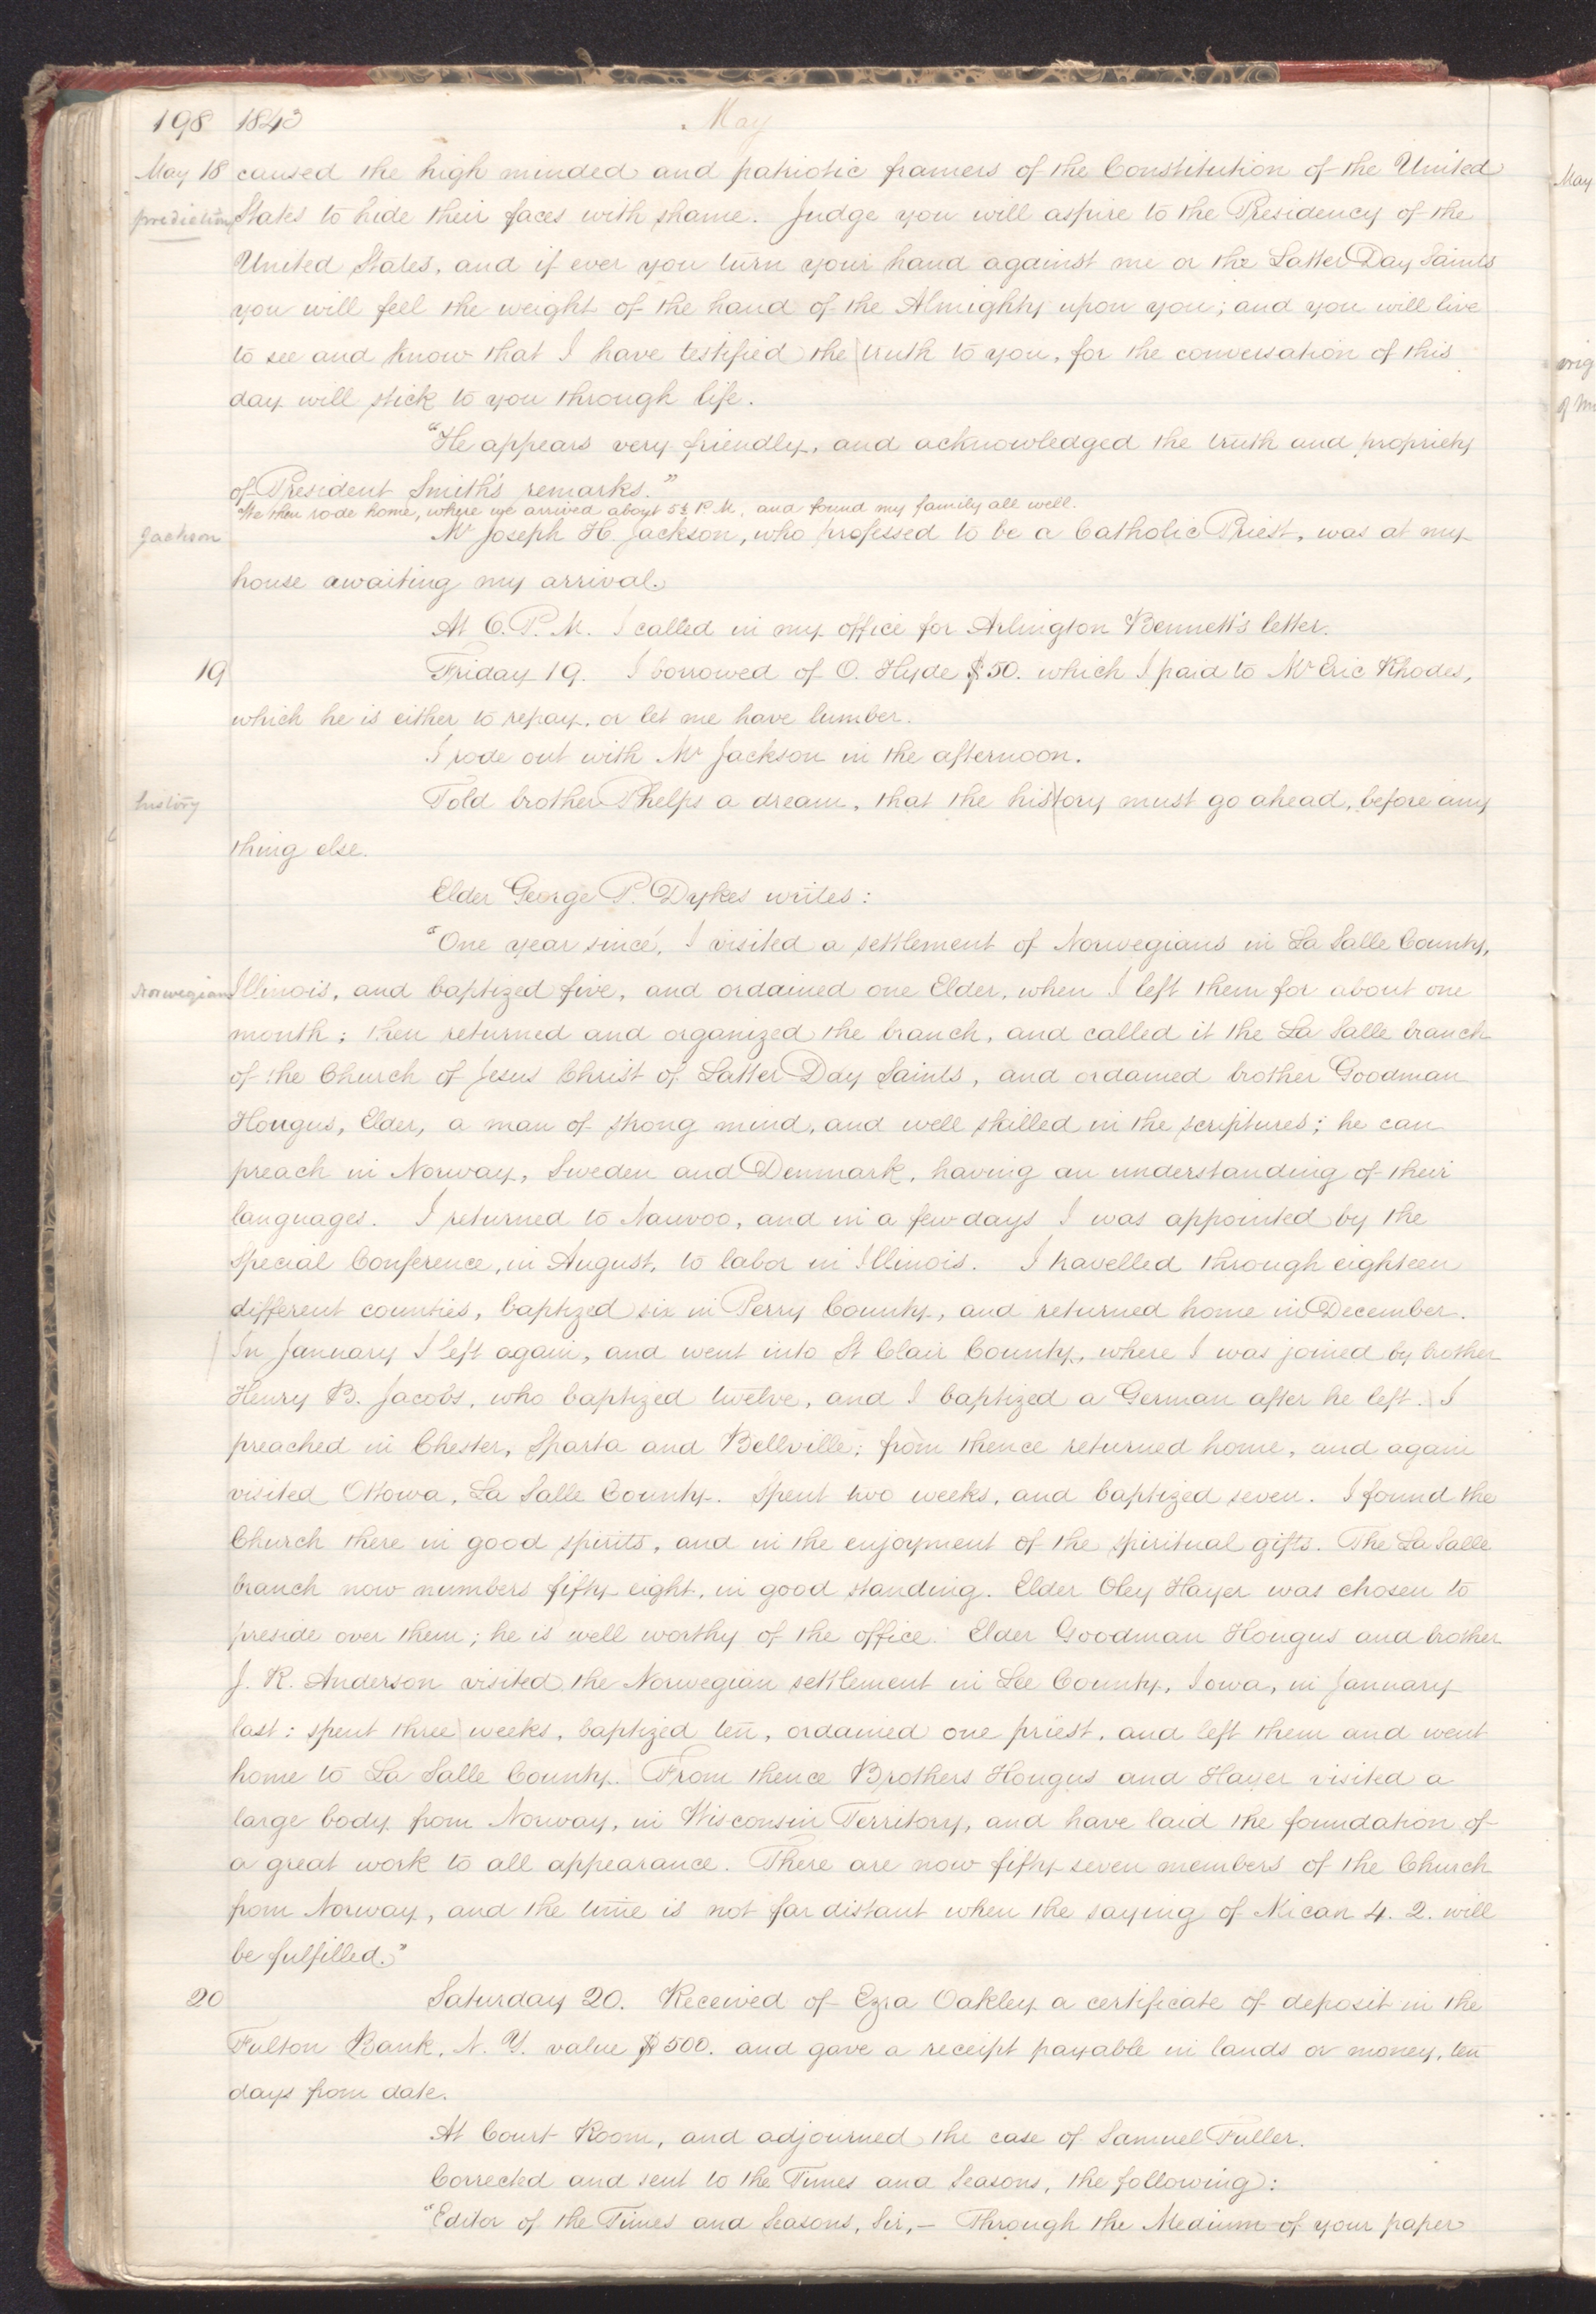 198 1843 May
May 18 caused the high minded and patriotic framers of the Constitution of the United
prediction States to hide their faces with shame. Judge you will aspire to the Presidency of the
United States, and if ever you turn your hand against me or the Latter Day Saints
you will feel the weight of the hand of the Almighty upon you; and you will live
to see and know that I have testified the truth to you, for the conversation of this
day will stick to you through life.
"He appears very friendly, and acknowledged the truth and propriety
of President Smith's remarks."
We then rode home, where we arrived about 5½ P.M., and found my family all well.
Jackson Mr Joseph H. Jackson, who professed to be a Catholic Priest, was at my
house awaiting my arrival.
At 6. P. M. I called in my office for Arlington Bennett's letter.
19 Friday 19. I borrowed of O. Hyde $50. which I paid to Mr Eric Rhodes,
which he is either to repay, or let me have lumber.
I rode out with Mr Jackson in the afternoon.
history Told brother Phelps a dream, that the history must go ahead, before any
thing else.
Elder George P. Dykes writes:
"One year since, I visited a settlement of Norwegians in La Salle County,
Norwegian Illinois, and baptized five, and ordained one Elder, when I left them for about one
month; then returned and organized the branch, and called it the La Salle branch
of the Church of Jesus Christ of Latter Day Saints, and ordained brother Goodman
Hougus, Elder, a man of strong mind, and well skilled in the scriptures; he can
preach in Norway, Sweden and Denmark, having an understanding of their
languages. I returned to Nauvoo, and in a few days I was appointed by the
special Conference, in August, to labor in Illinois. I travelled through eighteen
different counties, baptized six in Perry County, and returned home in December.
In January I left again, and went into St Clair County, where I was joined by brother
Henry B. Jacobs, who baptized twelve, and I baptized a German after he left. I
preached in Chester, Sparta and Bellville; from thence returned home, and again
visited Ottowa, La Salle County. Spent two weeks, and baptized seven. I found the
Church there in good spirits, and in the enjoyment of the spiritual gifts. The La Salle
branch now numbers fifty eight, in good standing. Elder Oley Hayer was chosen to
preside over them; he is well worthy of the office. Elder Goodman Hougus and brother
J. R. Anderson visited the Norwegian settlement in Lee County, Iowa, in January
last: spent three weeks, baptized ten, ordained one priest, and left them and went
home to La Salle County. From thence Brothers Hougus and Hayer visited a
large body from Norway, in Wisconsin Territory, and have laid the foundation of
a great work to all appearance. There are now fifty seven members of the Church
from Norway, and the time is not far distant when the saying of Micah 4. 2. will
be fulfilled."
20 Saturday 20. Received of Ezra Oakley a certificate of deposit in the
Fulton Bank, N. Y. value $500. and gave a receipt payable in lands or money, ten
days from date.
At Court Room, and adjourned the case of Samuel Fuller.
Corrected and sent to the Times and Seasons, the following:
"Editor of the Times and Seasons, Sir,— Through the Medium of your paper
May